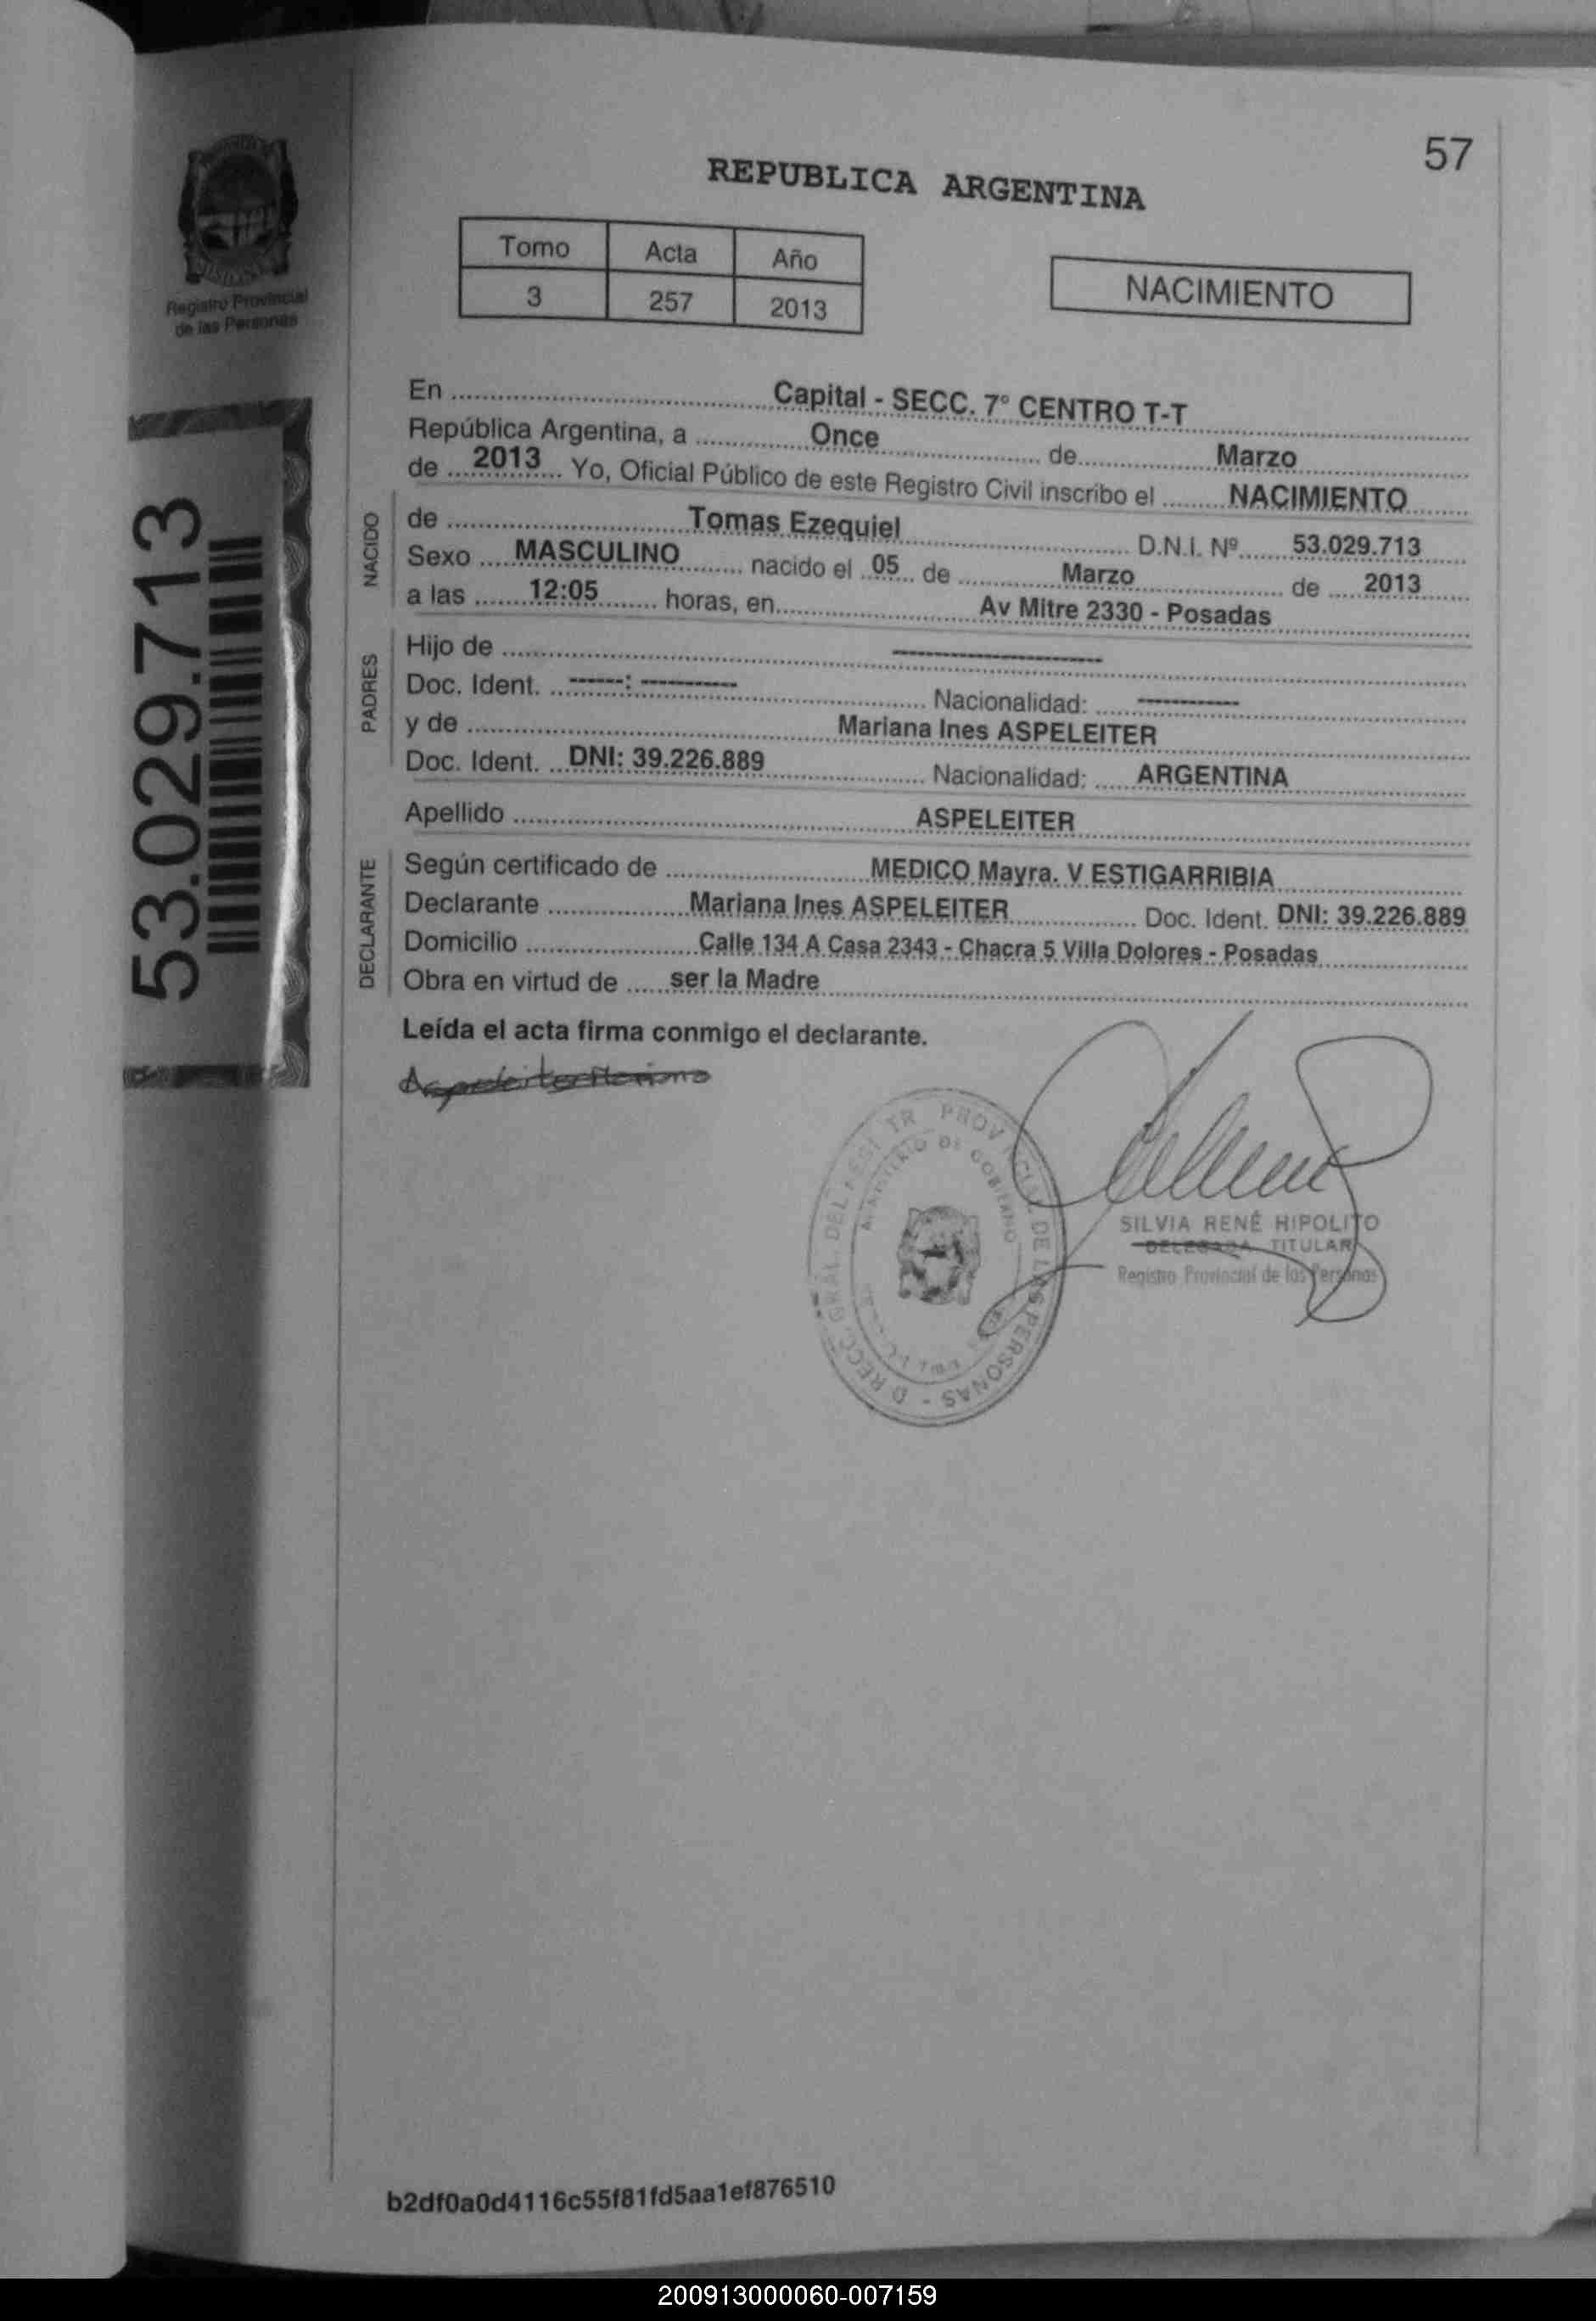 57
REPUBLICA ARGENTINA
Registro Provincial
de las Personas
Tomo Acta Año
3 257 2013
NACIMIENTO
53.029.713
En Capital - SECC. 7° CENTRO T-T
República Argentina, a Once de Marzo
de 2013 Yo, Oficial Público de este Registro Civil inscribo el NACIMIENTO
NACIDO
de Tomas Ezequiel D.N.I. Nº 53.029.713
Sexo MASCULINO nacido el 05 de Marzo de 2013
a las 12:05 horas, en Av Mitre 2330 - Posadas
PADRES
Hijo de --------------------
Doc. Ident. ------: ---------- Nacionalidad: -----------
y de Mariana Ines ASPELEITER
Doc. Ident. DNI: 39.226.889 Nacionalidad: ARGENTINA
Apellido ASPELEITER
DECLARANTE
Según certificado de MEDICO Mayra. V ESTIGARRIBIA
Declarante Mariana Ines ASPELEITER Doc. Ident. DNI: 39.226.889
Domicilio Calle 134 A Casa 2343 - Chacra 5 Villa Dolores - Posadas
Obra en virtud de ser la Madre
Leída el acta firma conmigo el declarante.
Aspeleiter Mariana
SILVIA RENÉ HIPOLITO
DELEGADA TITULAR
Registro Provincial de las Personas
MINISTERIO DE GOBIERNO
b2df0a0d4116c55f81fd5aa1ef876510
200913000060-007159